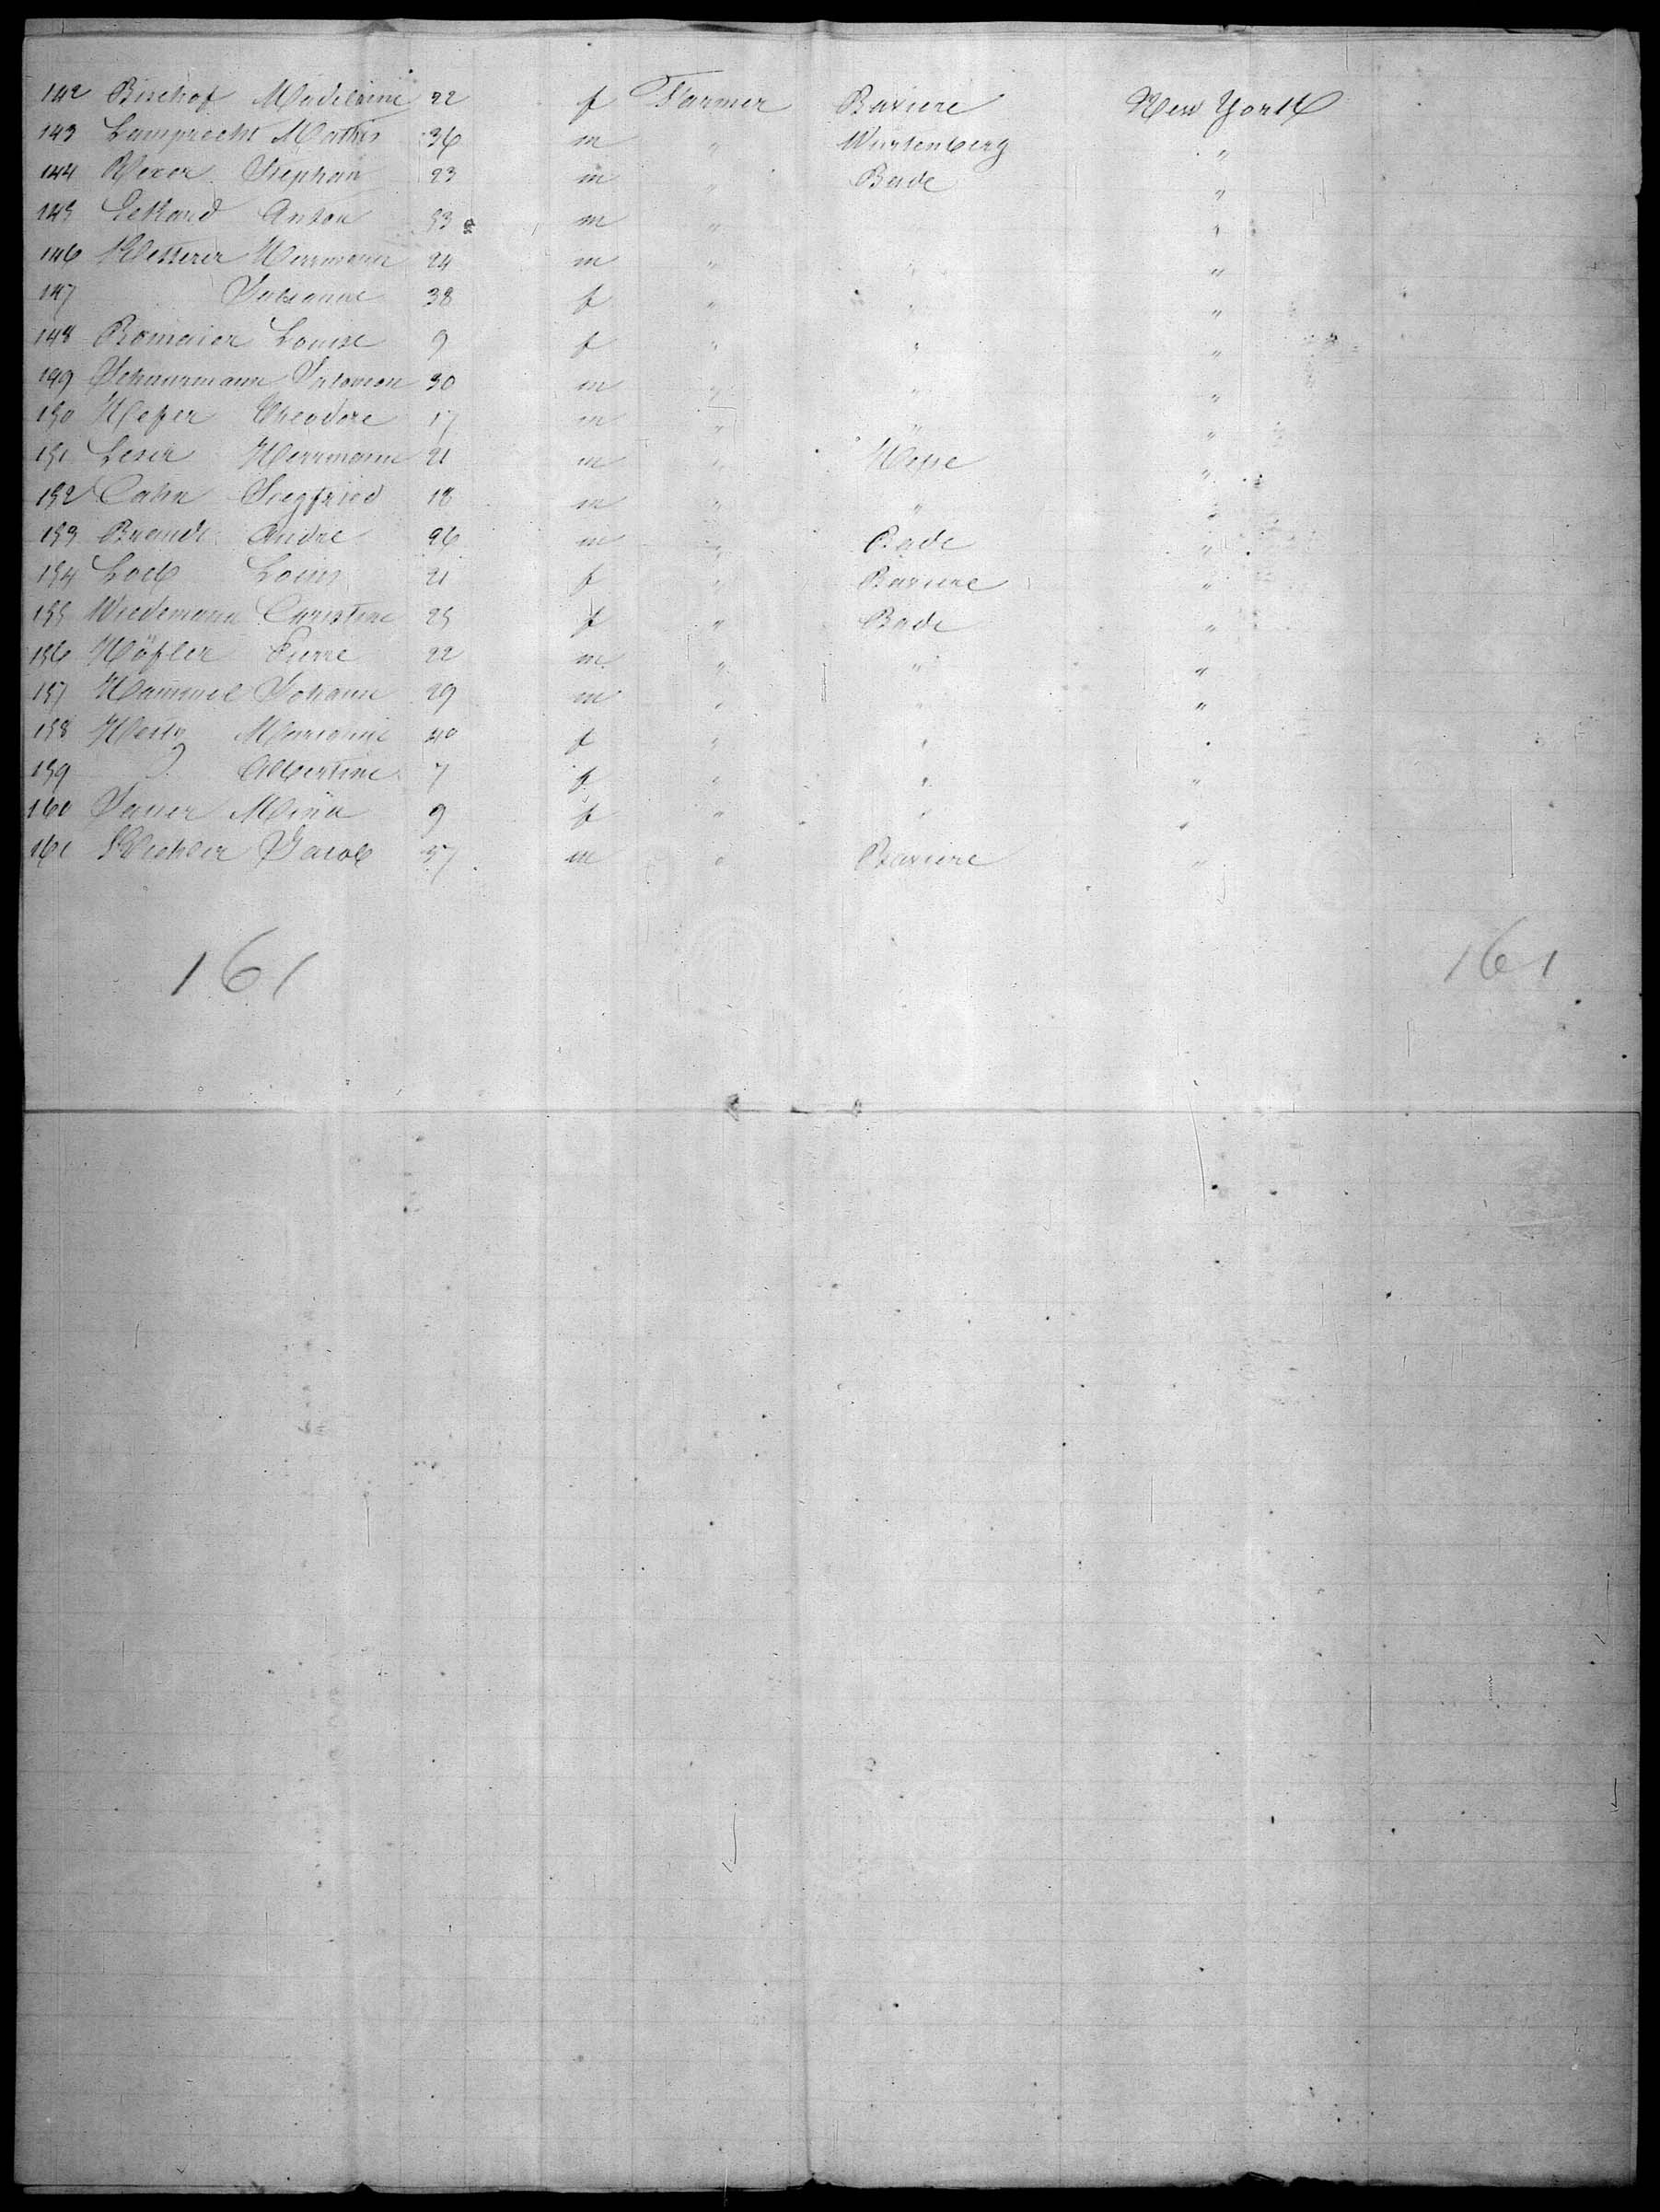 142 Bischof Madeleine 22 f Farmer Baviere New York
143 Lamprecht Mathis 36 m " Wurtenberg "
144 Stephan 23 m " Bade "
145 Eckard Anton 33 m " "
146 Herrmann 24 m " " "
147 38 f " " "
148 Bomaier Louise 9 f " " "
149 Schnurmann Salomon 30 m " " "
150 Heßer Theodore 17 m " " "
151 Leser Herrmann 21 m " Heße "
152 Cahn Siegfried 18 m " " "
153 Brandt Andre 26 m " Bade "
154 Loeb Louis 21 f " Baviere "
155 Wiedemann Christine 25 f " Bade "
156 Höfler Pierre 22 m " " "
157 Hammel Johann 29 m " " "
158 40 f " " "
159 " Albertine 7 f " " "
160 Sauer Mina 9 f " " "
161 Jacob 57 m " Baviere "
161 161